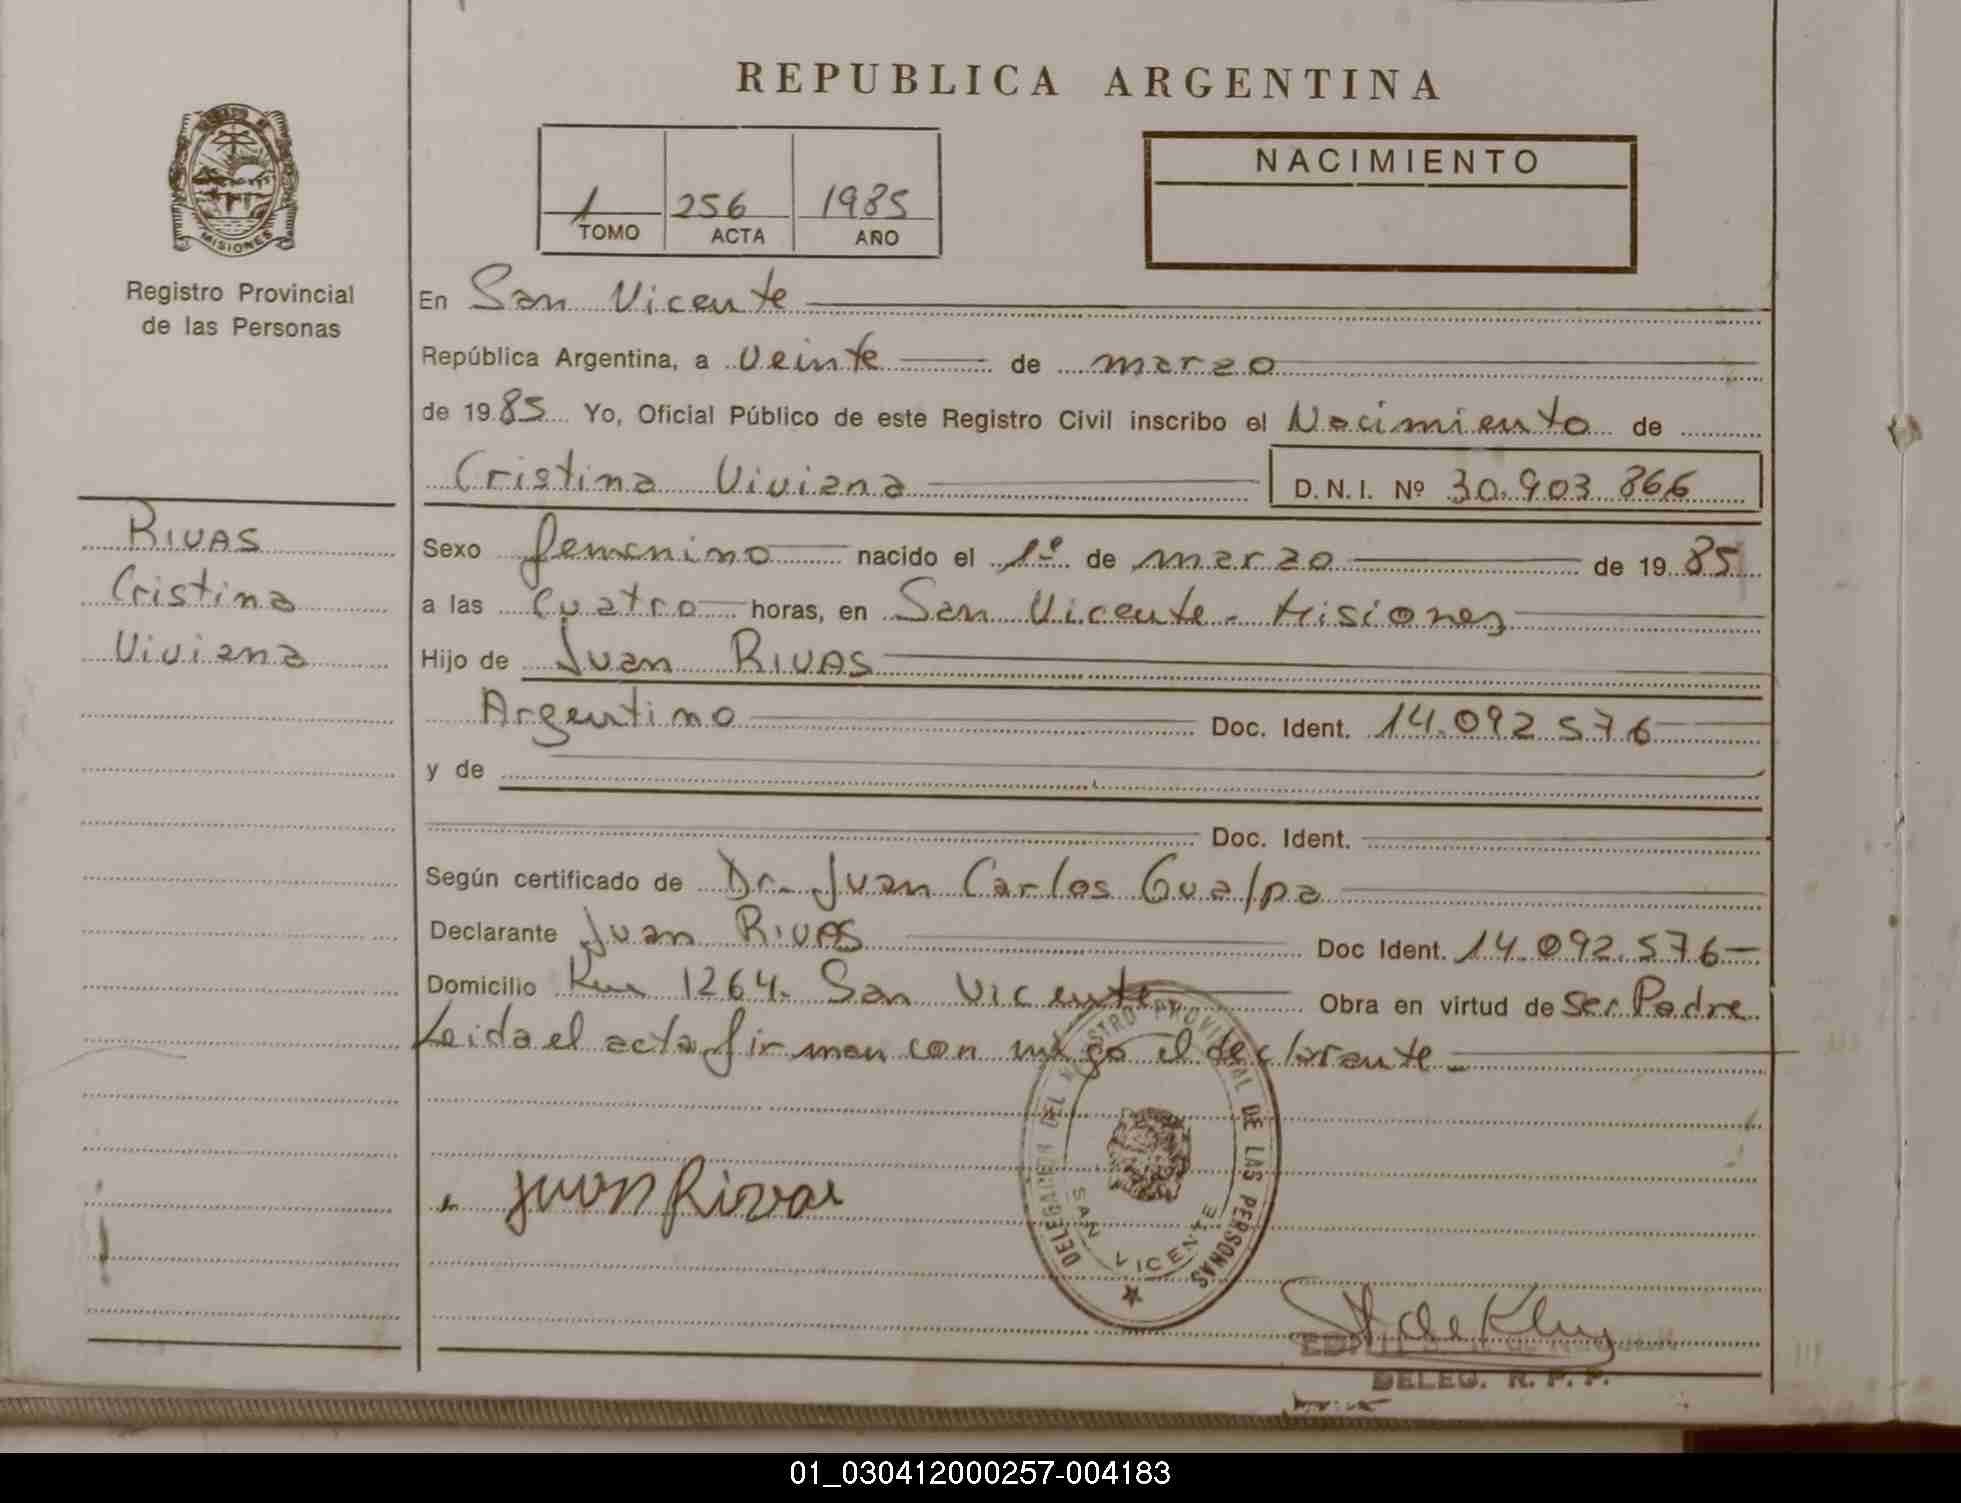 REPUBLICA ARGENTINA
1 256 1985
TOMO ACTA AÑO
NACIMIENTO
MISIONES
Registro Provincial
de las Personas
En San Vicente
República Argentina, a veinte de marzo
de 1985 Yo, Oficial Público de este Registro Civil inscribo el Nacimiento de
Cristina Viviana D.N.I. Nº 30.903 866
RIVAS
Cristina
Viviana
Sexo femenino nacido el 1º de marzo de 1985
a las cuatro horas, en San Vicente - Misiones
Hijo de Juan RIVAS
Argentino Doc. Ident. 14.092 576
y de
Doc. Ident.
Según certificado de Dr. Juan Carlos Gualpa
Declarante Juan RIVAS Doc Ident. 14.092.576
Domicilio Km 1264. San Vicente Obra en virtud de ser Padre
Leida el acta firman con migo el declarante
DELEGACION DEL REGISTRO PROVINCIAL DE LAS PERSONAS
SAN VICENTE
Juan Rivas
DELEG. R. P. P.
01_030412000257-004183